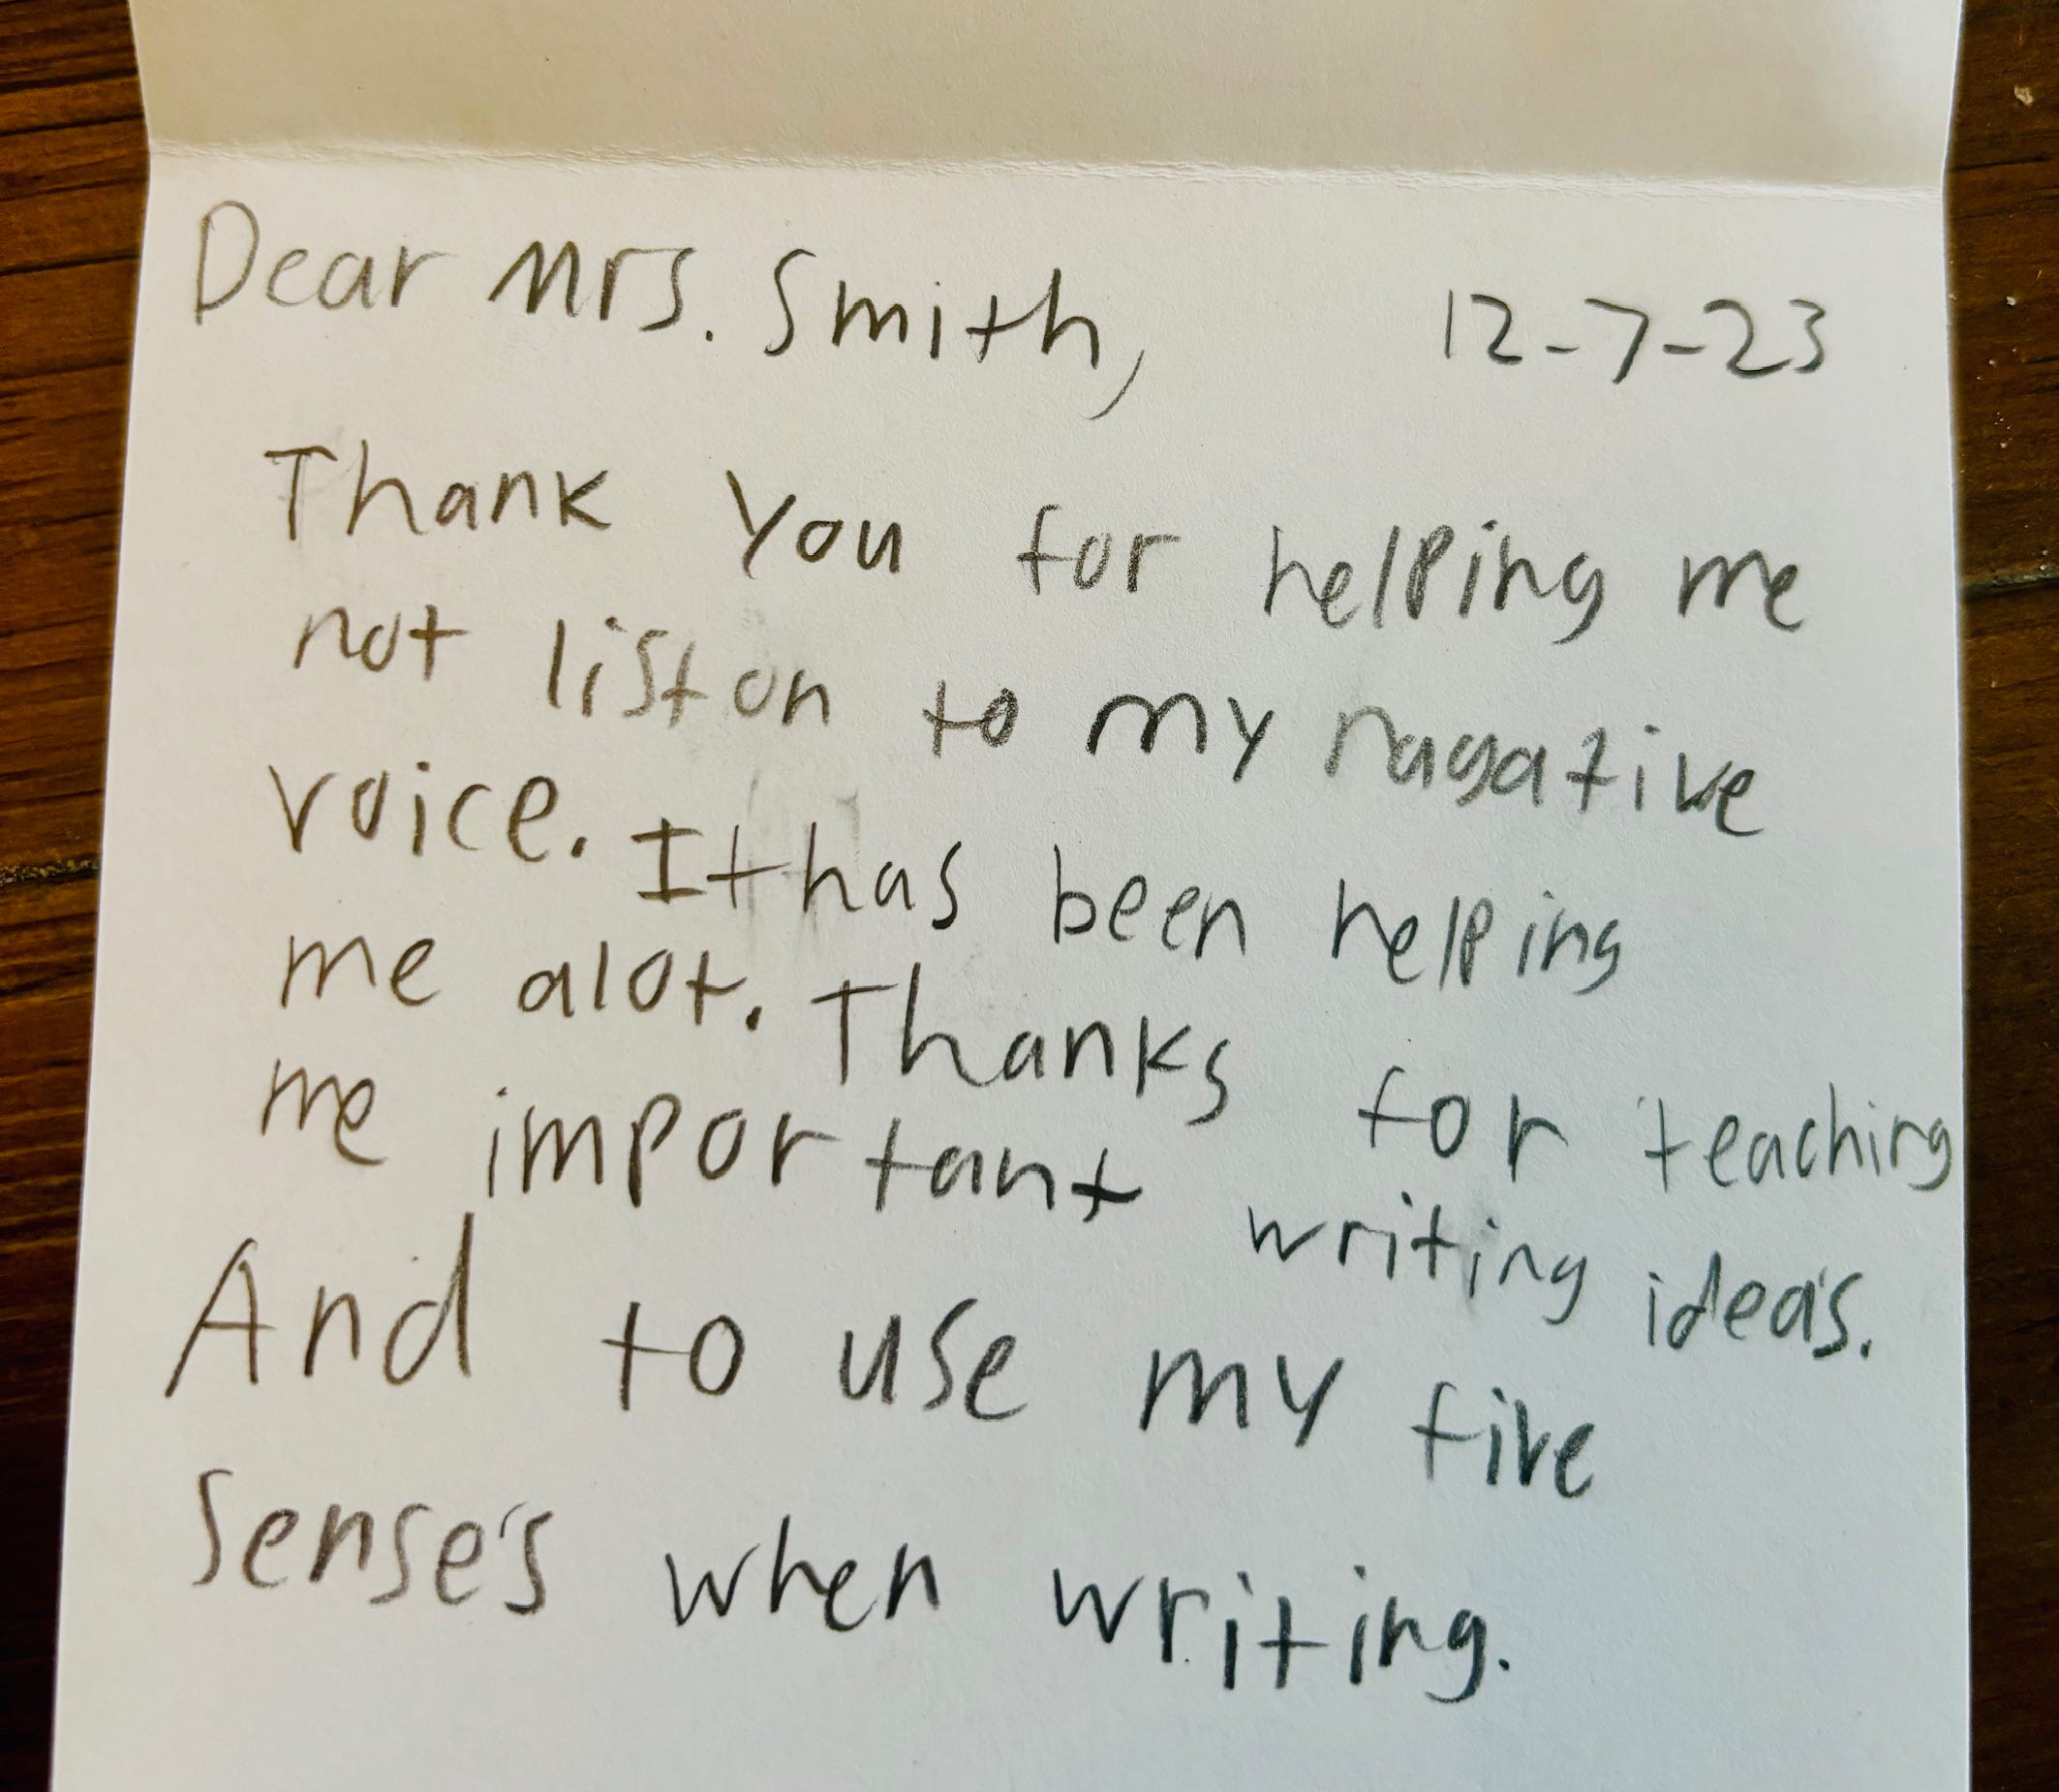 Dear Mrs. Smith, 12-7-23
Thank You for helping me
not liston to my nagative
voice. It has been helping
me alot. Thanks for teaching
me important writing ideas.
And to use my five
Sense's when writing.